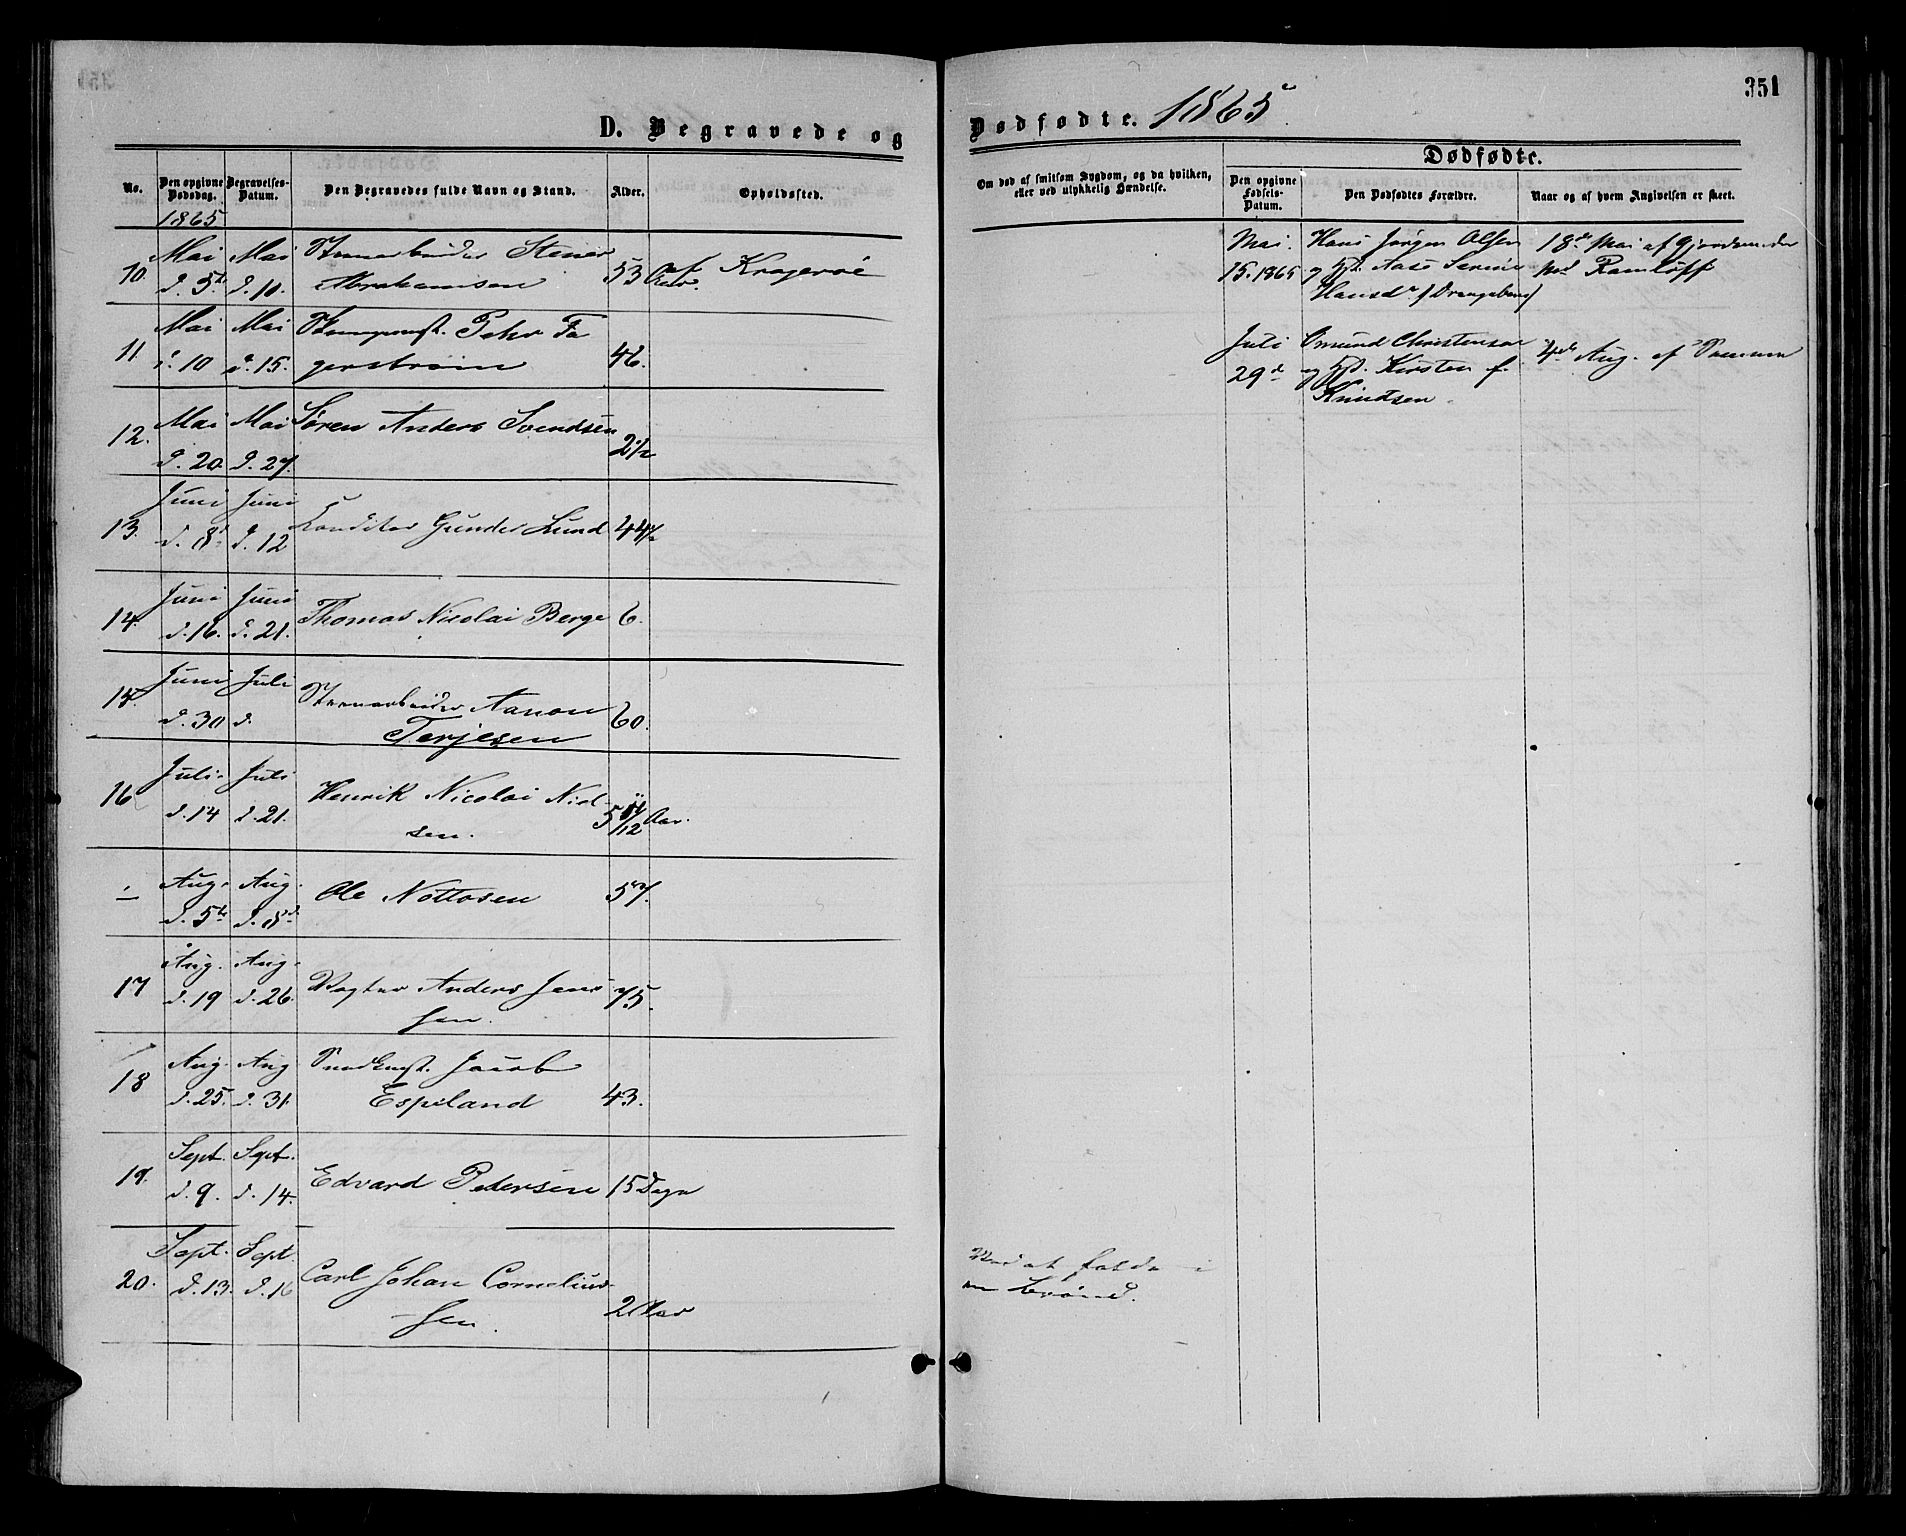 351
D. Begravede og Dødfødte. 1865
No.
Den opgivne Dødsdag.
Begravelses-Datum.
Den Begravedes fulde Navn og Stand.
Alder.
Opholdssted.
Om død af smitsom Sygdom, og da hvilken, eller ved ulykkelig Hændelse.
Dødfødte.
Den opgivne Fødsels-Datum.
Den Dødfødtes Forældre.
Naar og af hvem Angivelsen er skeet.
1865
10. Mai d. 5te Mai d. 10. Stener
Abrahamsen 53 Aar. af Kragerøe
11 Mai d. 10 Mai d. 15. Peter Fa
gerstrøm 46.
12. Mai d. 20. Mai d. 27. Søren Anders Svendsen 2 1/2
13. Juni d. 8de Juni d. 12 Conditor Gunder Lund 44 1/2
14. Juni d. 16. Juni d. 21. Thomas Nicolai Berge 6.
15. Juni d. 30 Juli d. Aanon
Terjesen 60.
16 Juli d. 14 Juli d. 21. Henrik Nicolai Niel-
sen. 5 11/12 Aar.
– Aug. d. 5te Aug. d. 8de Ole Nottosen 57.
17 Aug. d. 19 Aug. d. 26. Vægter Anders Jens
sen. 75.
18 Aug. d. 25. Aug d. 31. Jacob
Espeland 43.
19. Sept. d. 9. Sept. d. 14. Edvard Pedersen 15 Dage
20. Sept. d. 13. Sept d. 16 Carl Johan Cornelius-
sen. 2 Aar
Ved at falde i
en Brønd.
Mai 15. 1865 Hans Jørgen Olsen
og Hst. Aase Serine
Hansdr 18de Mai af Gjordemoder
Mad Ramløff
Juli 29de Omund Christensen
og Hst. Kirsten f.
Knudsen. 4de Aug. af Samme